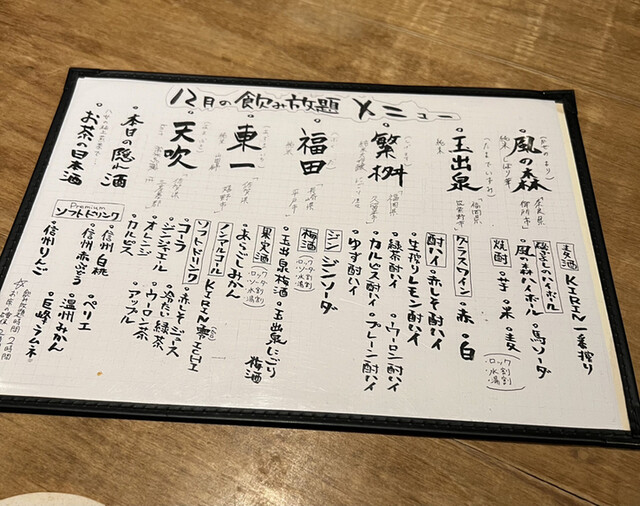 12月の飲み放題メニュー
・風の森
(かぜのもり)
奈良県
御所市
・玉出泉
(たまでいずみ)
純米
福岡県
・繁桝
福岡県
・福田
純米
長崎県
平戸市
・東一
佐賀県
嬉野市
・天吹
佐賀県
・本日の隠れ酒
・お茶の日本酒
麦酒 KIRIN 一番搾り
・風の森ハイボール ・馬ソーダ
焼酎 ・芋 ・米 ・麦
ロック
水割
湯割
グラスワイン ・赤 ・白
酎ハイ ・赤しそ酎ハイ
・生搾りレモン酎ハイ
・緑茶酎ハイ ・ウーロン酎ハイ
・カルピス酎ハイ ・プレーン酎ハイ
・ゆず酎ハイ
ジン ジンソーダ
梅酒
ロック
ソーダ割
水割
湯割
・玉出泉梅酒 ・玉出泉にごり梅酒
果実酒
ロック
ソーダ割
水割
湯割
・あらごしみかん
ノンアルコール KIRIN 零ICHI
ソフトドリンク
・コーラ ・赤しそジュース
・ジンジャエール ・冷たい緑茶
・オレンジ ・ウーロン茶
・カルピス ・アップル
Premium
ソフトドリンク
・信州 白桃 ・ペリエ
・信州 赤ぶどう ・温州みかん
・信州りんご ・巨峰ラムネ
☆飲み放題時間 2時間